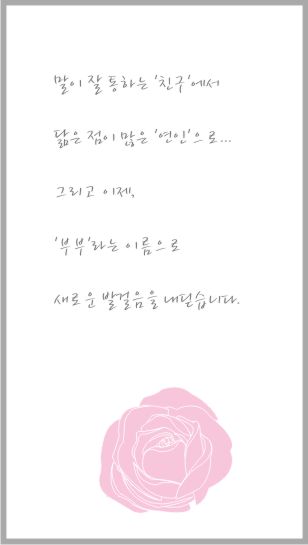 말이 잘 통하는 '친구'에서
닮은 점이 많은 '연인'으로...
그리고 이제,
'부부'라는 이름으로
새로운 발걸음을 내딛습니다.